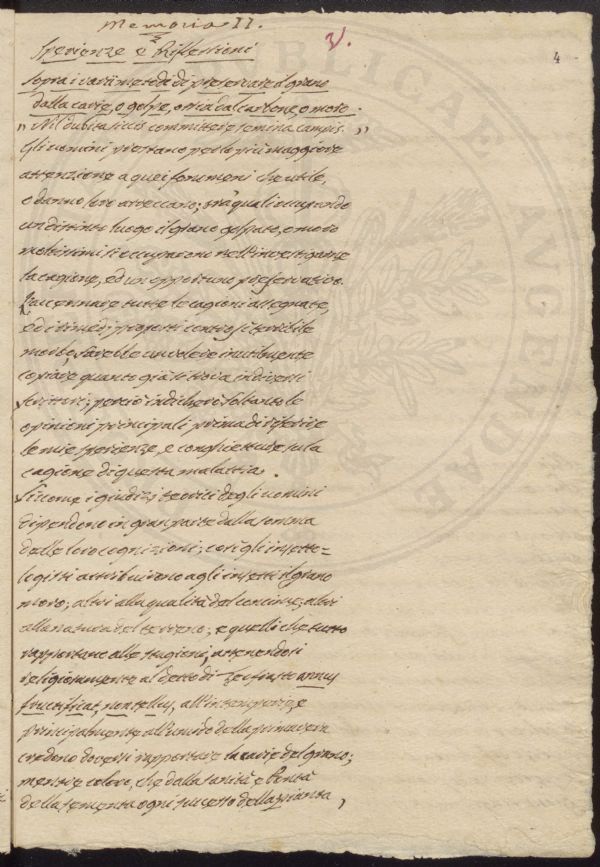 Memoria II.
2/.
4
Sperienze e Riflessioni
sopra i varj metodi di preservare il grano
dalla carie, o golpe, ossia dal carbone, o moro.
„ Nil dubita siccis committere semina campis. „
Gli uomini prestano per lo più maggiore
attenzione a quei fenomeni che utile,
o danno loro arreccano; tra' quali occupando
un distinto luogo il grano golpato, o moro
moltissimi si occuparono nell'investigarne
la cagione, ed un opportuno preservativo.
L'accennare tutte le cagioni assegnate,
ed i rimedj proposti contro sì terribile
morbo, sarebbe un volere inutilmente
copiare quanto già si trova in diversi
scrittori; perciò indicherò soltanto le
opinioni principali prima di riferire
le mie sperienze, e conghietture sulla
cagione di questa malattia.
Siccome i giudizi teorici degli uomini
dipendono in gran parte dalla somma
delle loro cognizioni; così gli insetto=
logisti attribuirono agli insetti il grano
moro; altri alla qualità del concime; altri
alla natura del terreno; e quelli che tutto
rapportano alle stagioni, attenendosi
religiosamente al detto di Teofrasto annus
fructificat, non tellus, all'intemperie, e
principalmente all'umido della primavera
credono doversi rapportare la carie del grano;
mentre coloro, che dalla sanità e bontà
della semenza ogni successo della pianta,
PUBLICAE
AVGENDAE